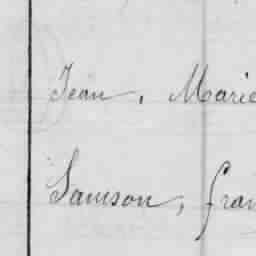 Jean, Marie
Samson, fran